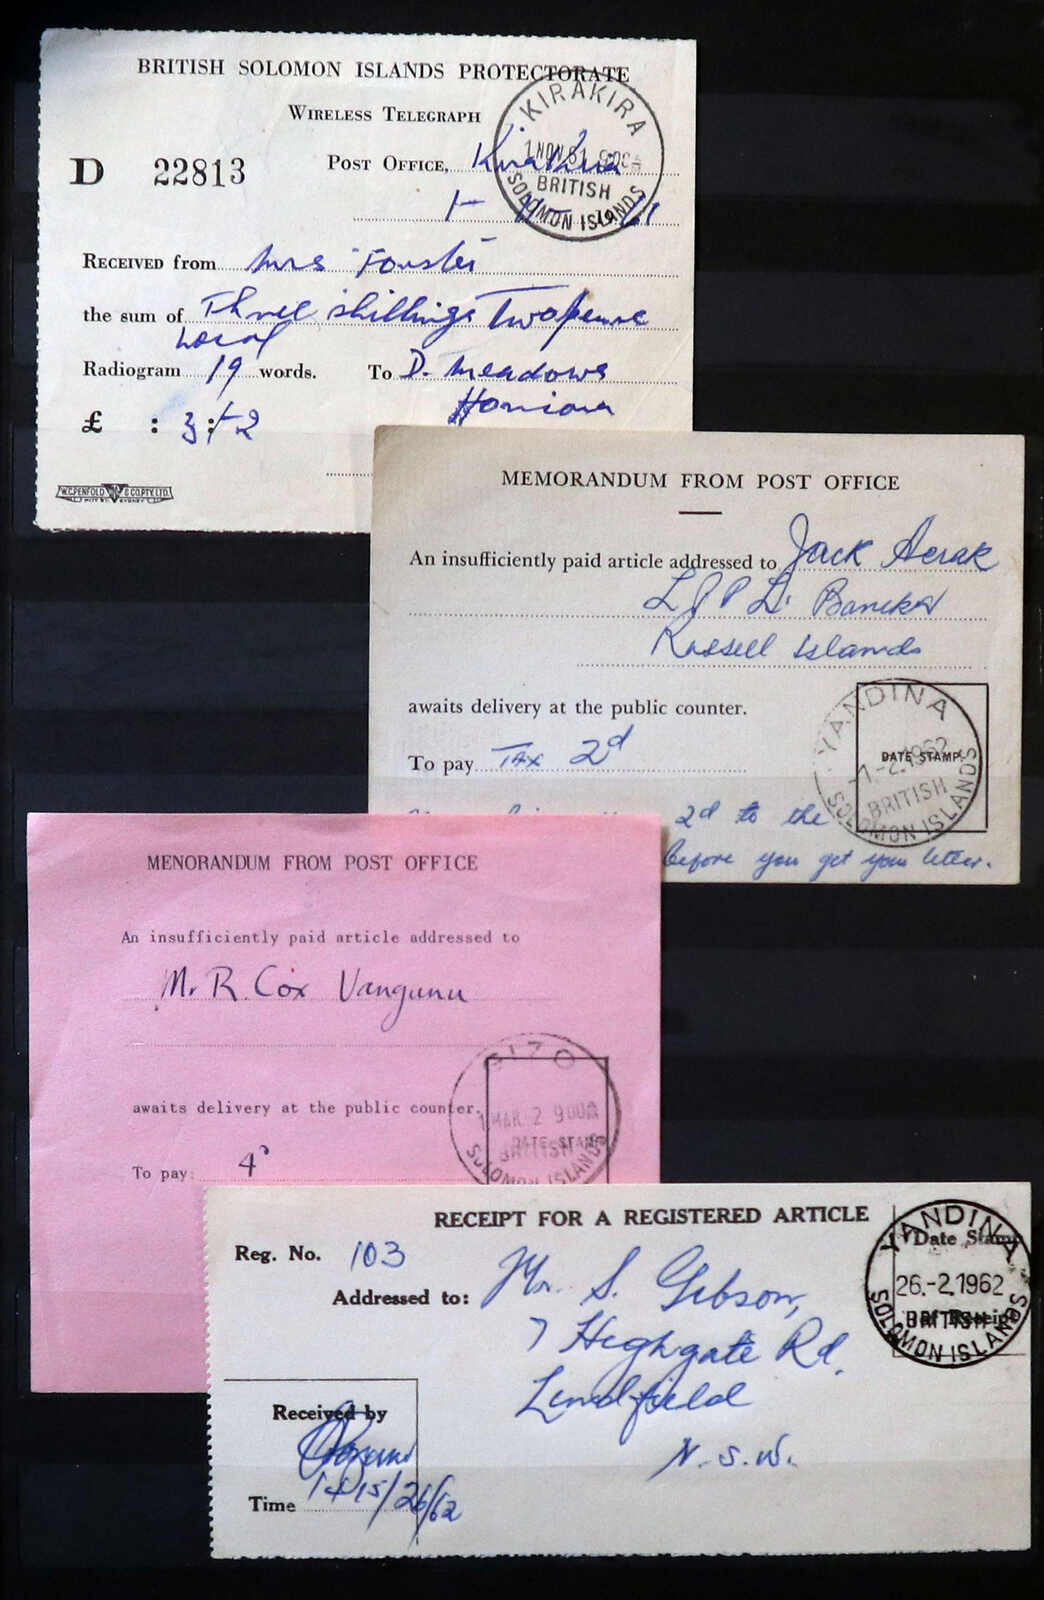 BRITISH SOLOMON ISLANDS PROTECTORATE
WIRELESS TELEGRAPH
D 22813
POST OFFICE, Kira Kira
1- 11- 1961
KIRAKIRA
1 NOV 61 9 00A
BRITISH
SOLOMON ISLANDS
RECEIVED from Mrs Forster
the sum of Three shillings Twopence
Local
Radiogram 19 words. To D. Meadows
Honiara
£ : 3 : 2
W.C. PENFOLD & CO. PTY. LTD.
MEMORANDUM FROM POST OFFICE
An insufficiently paid article addressed to Jack Aerak
L P P L. Banika
Russell Islands
awaits delivery at the public counter.
To pay Tax 2d
YANDINA
DATE STAMP.
-7.-2.1962
BRITISH
SOLOMON ISLANDS
2d to the
before you get your letter.
MENORANDUM FROM POST OFFICE
An insufficiently paid article addressed to
Mr R. Cox Vangunu
awaits delivery at the public counter.
To pay: 4d
GIZO
1 MAR. 2 9 00A
DATE STAMP
BRITISH
SOLOMON ISLANDS
RECEIPT FOR A REGISTERED ARTICLE
Reg. No. 103
Addressed to: Mr. S. Gibson,
7 Highgate Rd.
Lindfield
N.S.W.
YANDINA
Date Stamp
26.-2.1962
of Receipt
BRITISH
SOLOMON ISLANDS
Received by
Time 1415/26/62